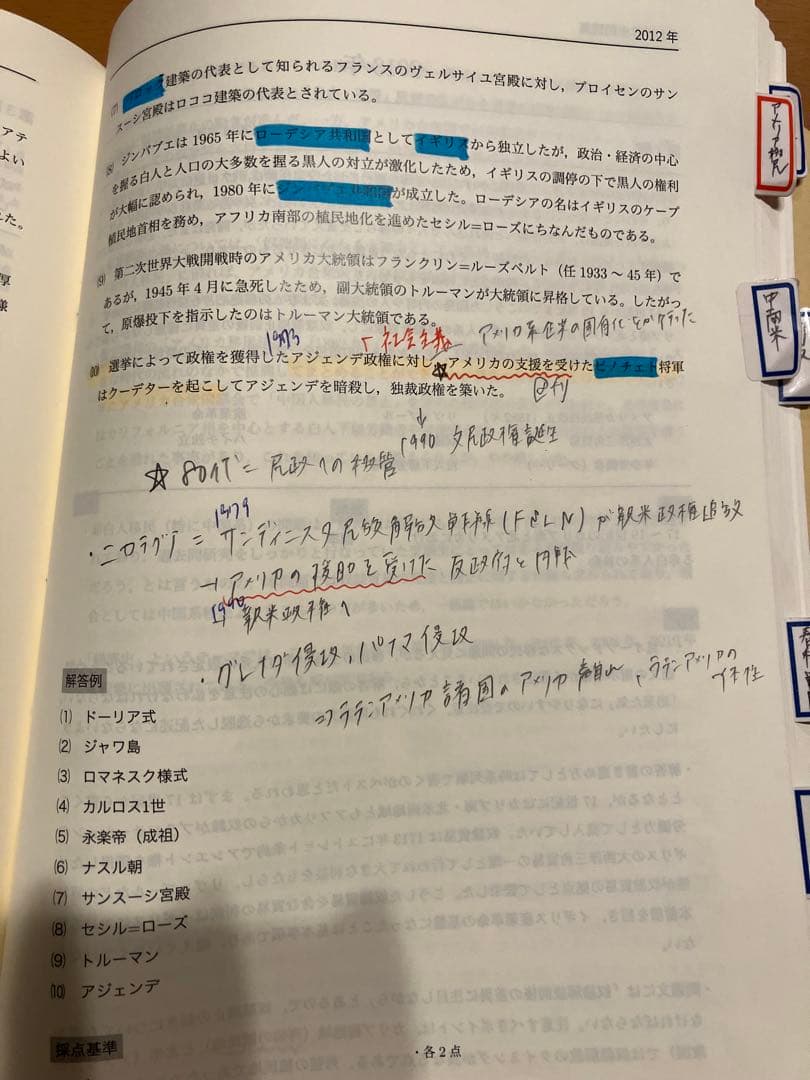 2012年
(7) 建築の代表として知られるフランスのヴェルサイユ宮殿に対し，プロイセンのサン
スーシ宮殿はロココ建築の代表とされている。
(8) ジンバブエは1965年にローデシア共和国としてイギリスから独立したが，政治・経済の中心
を握る白人と人口の大多数を握る黒人の対立が激化したため，イギリスの調停の下で黒人の権利
が大幅に認められ，1980年にジンバブエ共和国が成立した。ローデシアの名はイギリスのケープ
植民地首相を務め，アフリカ南部の植民地化を進めたセシル=ローズにちなんだものである。
(9) 第二次世界大戦開戦時のアメリカ大統領はフランクリン=ルーズベルト（任1933～45年）で
あるが，1945年4月に急死したため，副大統領のトルーマンが大統領に昇格している。したがっ
て，原爆投下を指示したのはトルーマン大統領である。
1973 社会主義 アメリカ系企業の国有化
(10) 選挙によって政権を獲得したアジェンデ政権に対し，☆アメリカの支援を受けたピノチェト将軍
はクーデターを起こしてアジェンデを暗殺し，独裁政権を築いた。
↓
1990 文民政権誕生
☆80年代＝民政への移管
1979
・ニカラグア＝サンディニスタ民族解放戦線(FSLN)が親米政権追放
→アメリカの援助を受けた反政府と内戦
1990 親米政権へ
・グレナダ侵攻，パナマ侵攻
⇒ラテンアメリカ諸国のアメリカ離れ，ラテンアメリカの
解答例
(1) ドーリア式
(2) ジャワ島
(3) ロマネスク様式
(4) カルロス1世
(5) 永楽帝（成祖）
(6) ナスル朝
(7) サンスーシ宮殿
(8) セシル=ローズ
(9) トルーマン
(10) アジェンデ
採点基準
・各2点
中南米